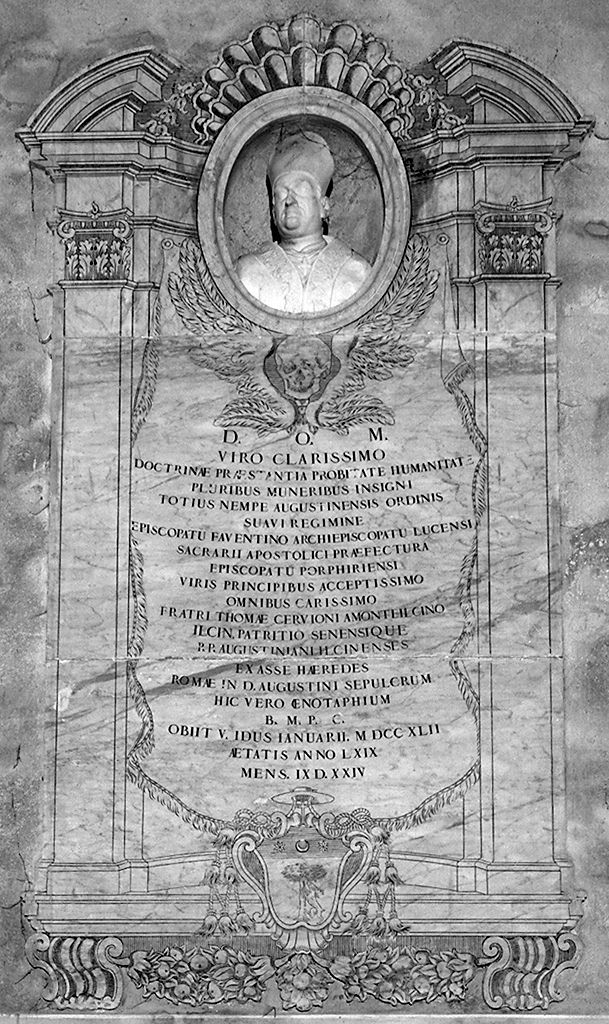 D. O. M.
VIRO CLARISSIMO
DOCTRINÆ PRÆSTANTIA PROBITATE HUMANITATE
PLURIBUS MUNERIBUS INSIGNI
TOTIUS NEMPE AUGUSTINENSIS ORDINIS
SUAVI REGIMINE
EPISCOPATU FAVENTINO ARCHIEPISCOPATU LUCENSI
SACRARII APOSTOLICI PRÆFECTURA
EPISCOPATU PORPHIRIENSI
VIRIS PRINCIPIBUS ACCEPTISSIMO
OMNIBUS CARISSIMO
FRATRI THOMÆ CERVIONI AMONTEILCINO
ILCIN. PATRITIO SENENSIQUE
P.P. AUGUSTINIANI ILCINENSES
EX ASSE HÆREDES
ROMÆ IN D. AUGUSTINI SEPULCRUM
HIC VERO CENOTAPHIUM
B. M. P. C.
OBIIT V. IDUS IANUARII. M DCC XLII
ÆTATIS ANNO LXIX
MENS. IX D. XXIV